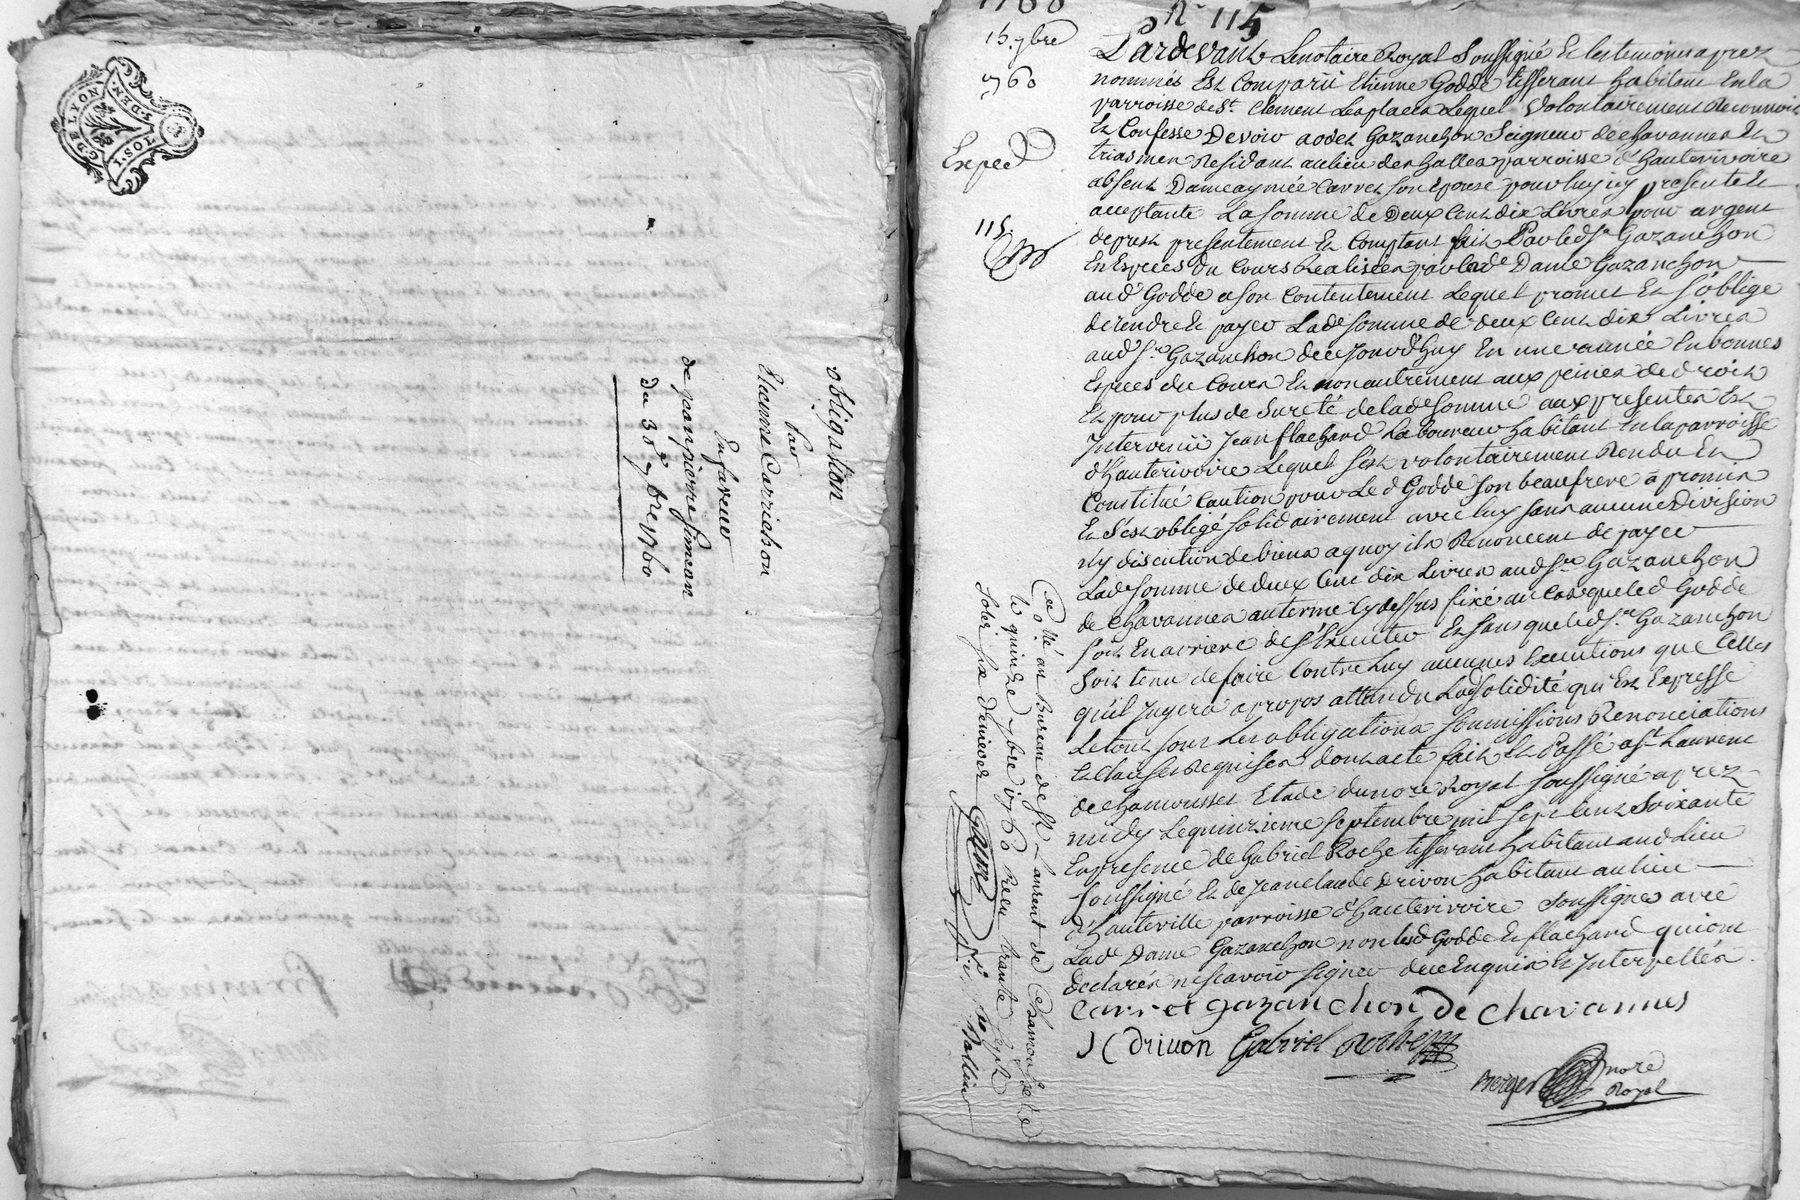 G. DE LYON
1. SOL. 8. DEN.
obligation
par
Etienne Carrichon
En faveur
de jean pierre simean
Du 30e 7bre 1760
1760
N 115
15. 7bre
1760
Exped
115
Pardevant Le notaire Royal Soussigné Et les temoins aprez
nommés Est Comparu Etienne Godde tisserant habitant En la
parroisse de St. Clement Les places Lequel Volontairement Reconnoit
Et Confesse Devoir a odet Gazanchon Seigneur de chavannes Et
triasmen Residant au lieu des halles parroisse d'hauterivoire
absent Dame aymée Carret son Epouse pour luy icy presente Et
acceptante La somme de Deux Cent dix Livres pour argent
de prest presentement Et Comptant fait Par led Sr Gazanchon
En Especes du Cours Realisées par lade Dame Gazanchon
aud Godde a son Contentement Lequel promet Et s'oblige
de rendre Et payer Lade somme de deux Cent dix Livres
aud Sr Gazanchon de ce Jourd'huy En une année En bonnes
Especes du Cours Et non autrement aux peines de droit
Et pour plus de sureté de lade somme aux presentes Est
Intervenu Jean flachard Laboureur habitant En la parroisse
d'hauterivoire Lequel s'est volontairement Rendu Et
Constitué Caution pour Le d Godde son beaufrere a promis
Et s'est obligé solidairement avec luy sans aucune Division
ny discution de biens a quoy ils Renoncent de payer
Lade somme de deux Cent dix Livres aud Sre Gazanchon
de Chavannes au terme Cy dessus fixé au Cas que led Godde
soit En arriere de s'Executer Et sans que led Sre Gazanchon
soit tenu de faire Contre Luy aucunes Executions que Celles
qu'il Jugera a propos attendu Lad solidité qui Est Expresse
Le tout sous Les obligations soumissions Renonciations
Et Clauses Requises dont acte fait Et Passé a St Laurent
de Chamousset Etude du nore Royal soussigné aprez
midy Le quinzieme septembre mil sept Cent Soixante
En presence de Gabriel Roche tisserant habitant aud Lieu
soussigné Et de Jean claude Drivon habitant au lieu
d'hauteville parroisse d'hauterivoire soussignes avec
Lade Dame Gazanchon non lesd Godde Et flachard qui ont
Declarés ne scavoir signer de ce Enquis Et Interpellés
Carret gazanchon de Chavannes
J C drivon Gabriel Roche
Berger nore
Royal
Collé au Bureau de St Laurent de Chamousset Le
Le quinze 7bre 1760 Reçu trante sept
sols six deniers